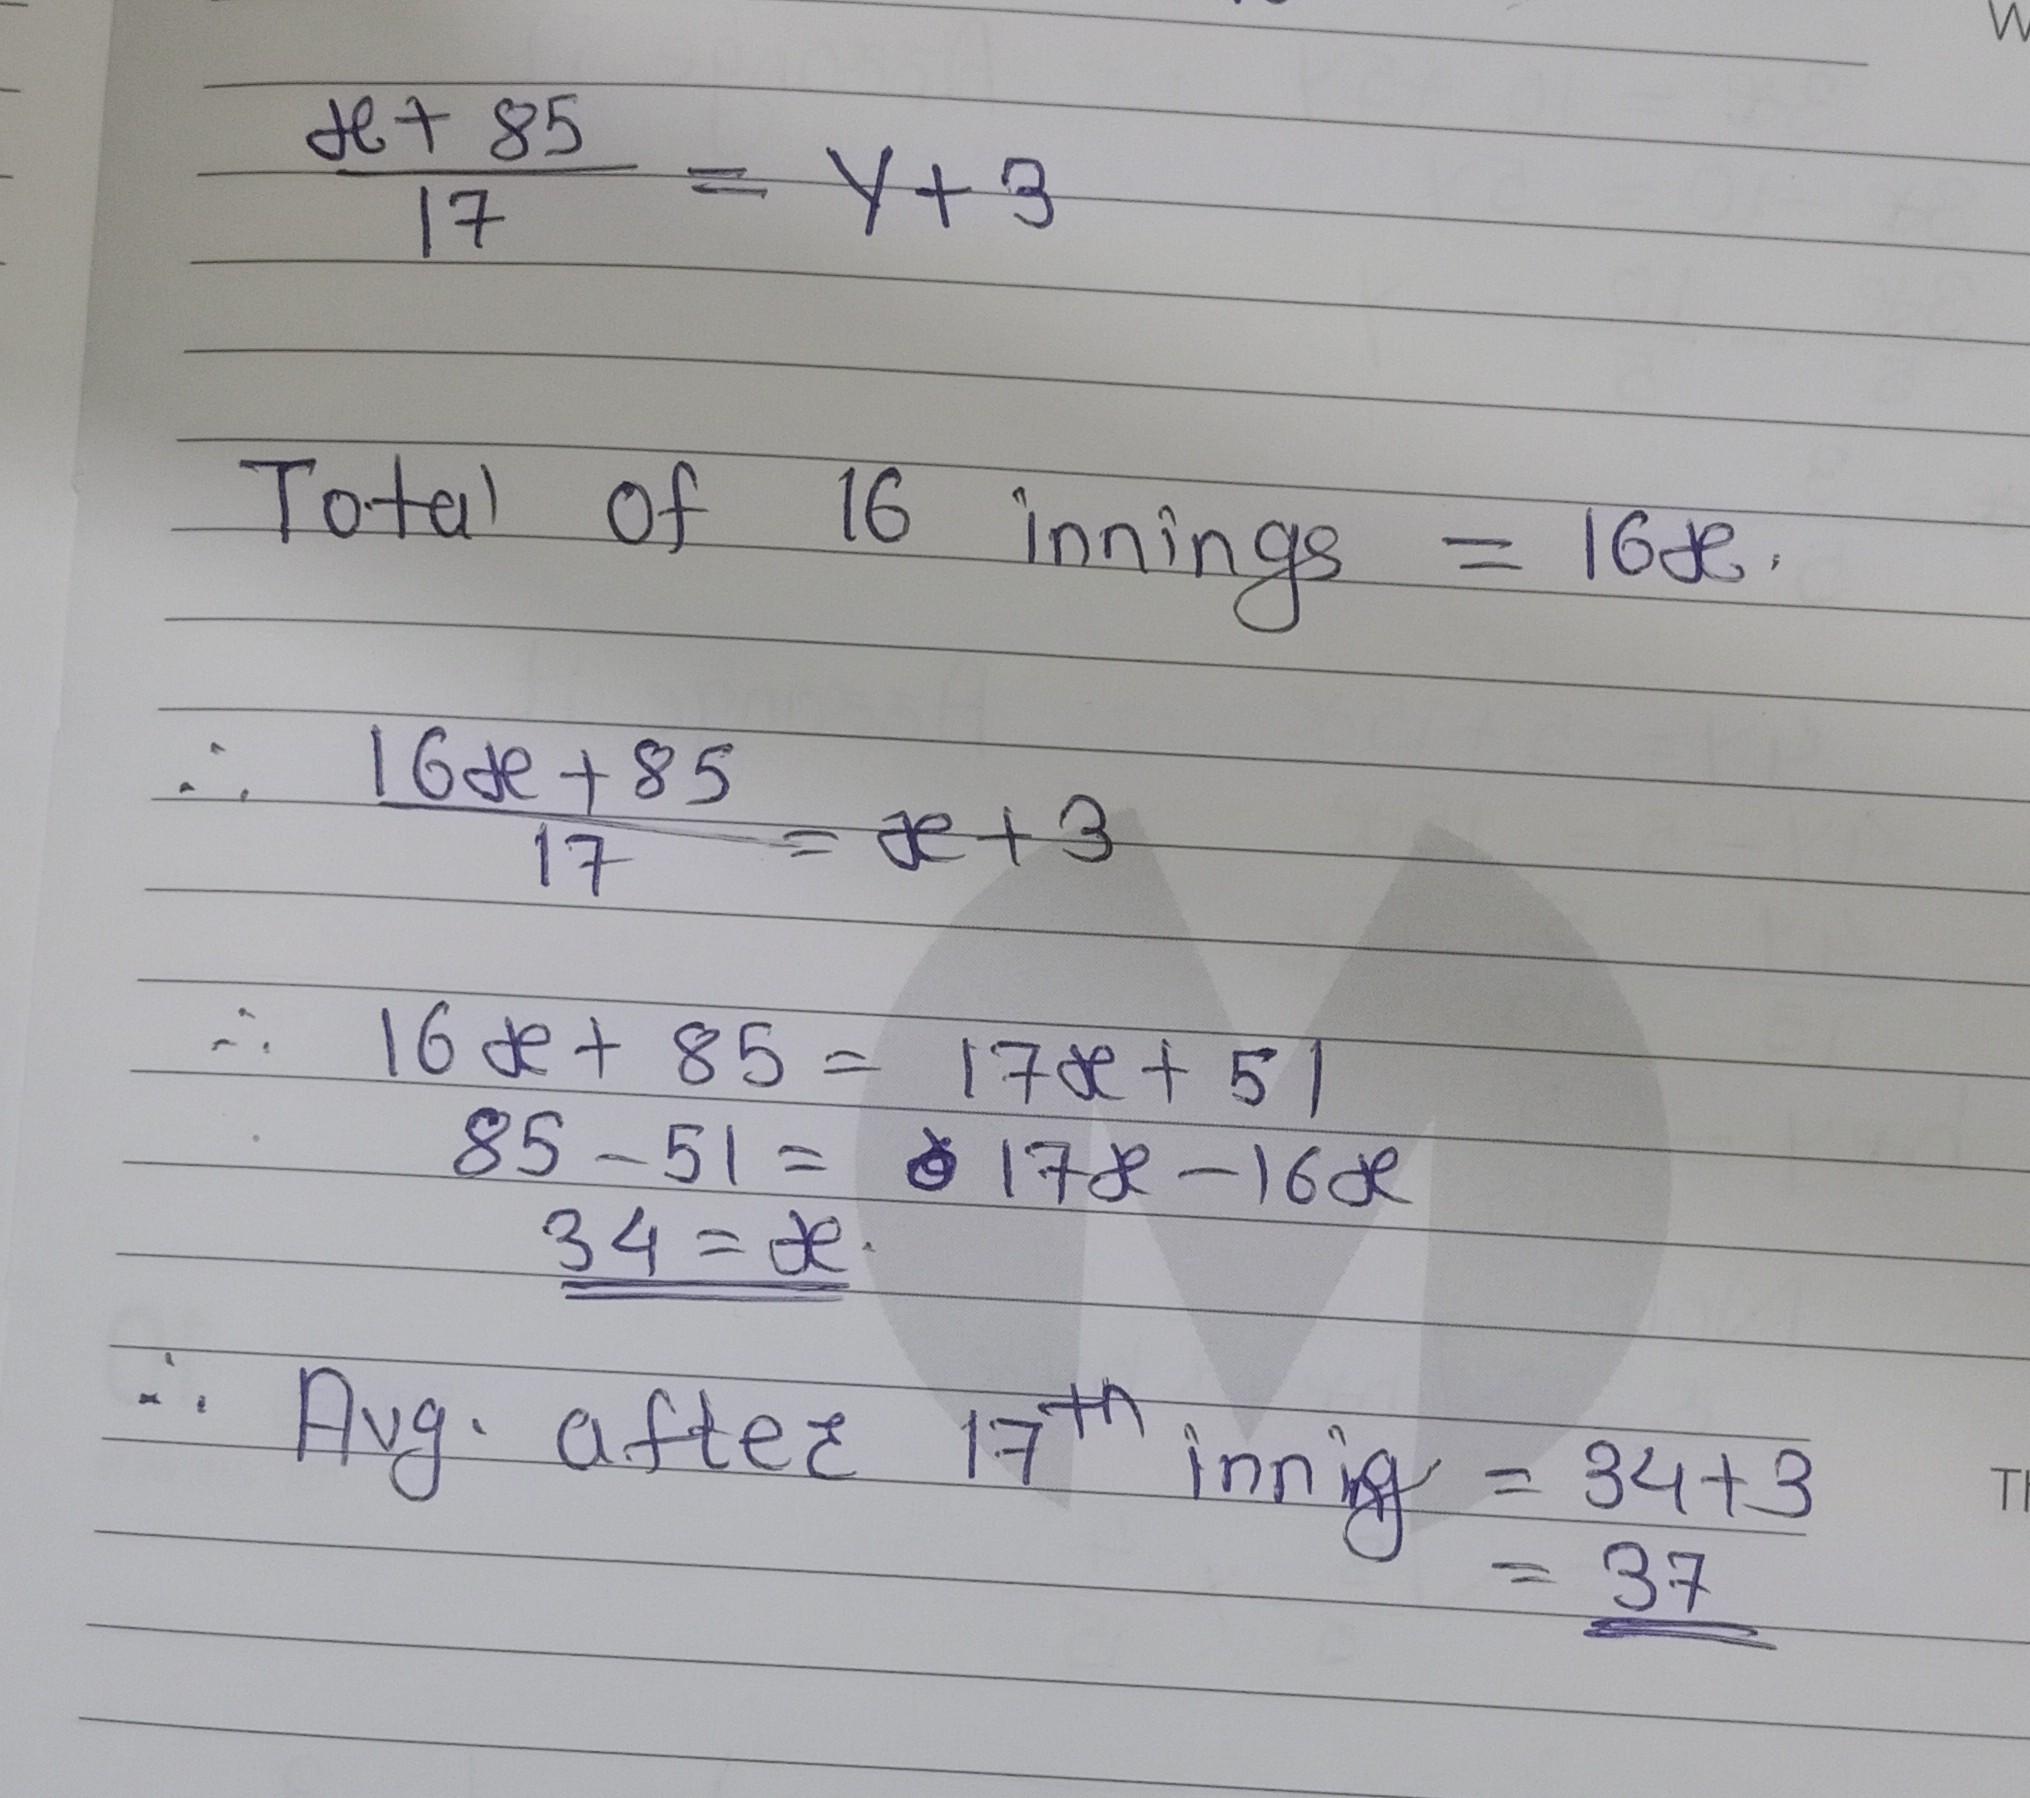 x + 85
17
= Y + 3
Total of 16 innings = 16x.
∴ 16x + 85
17
= x + 3
∴ 16x + 85 = 17x + 51
85 - 51 = 17x - 16x
34 = x.
∴ Avg. after 17th innig = 34 + 3
= 37